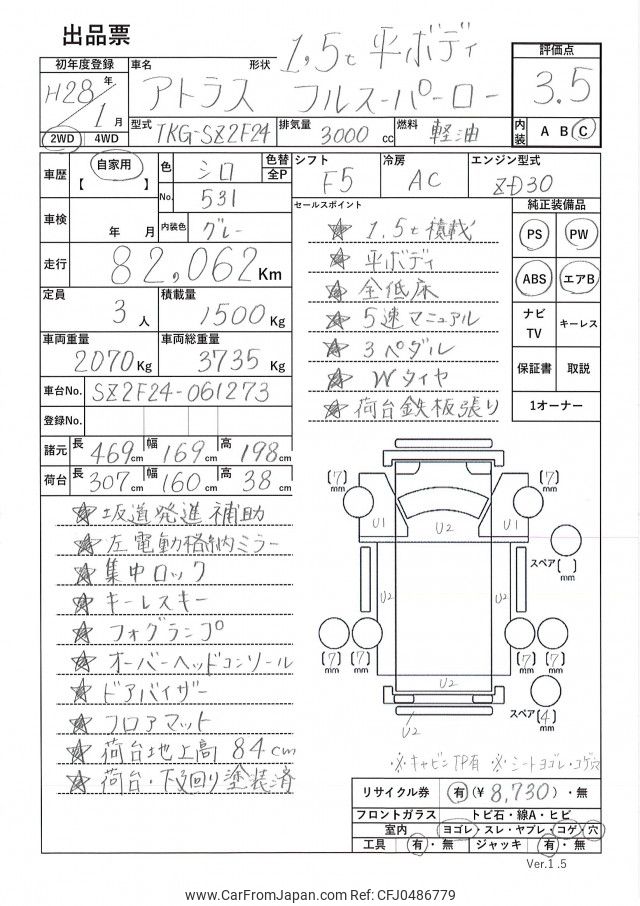 出品票
1,5t 平ボディ
初年度登録 車名 形状 評価点
H28年 1月 アトラス フルスーパーロー 3.5
型式 TKG-SZ2F24 排気量 3000cc 燃料 軽油 内装 A B C
2WD 4WD
車歴 自家用 【 】 色 シロ 色替 全P シフト F5 冷房 AC エンジン型式 ZD30
No. 531 セールスポイント 純正装備品
車検 年 月 内装色 グレー ☆ 1,5t積載 PS PW
☆ 平ボディ
走行 82,062Km ☆ 全低床 ABS エアB
定員 3人 積載量 1500Kg ☆ 5速マニュアル ナビ TV キーレス
車両重量 2070Kg 車両総重量 3735Kg ☆ 3ペダル
☆ Wタイヤ 保証書 取説
車台No. SZ2F24-061273 ☆ 荷台鉄板張り 1オーナー
登録No.
諸元 長 469cm 幅 169cm 高 198cm
荷台 長 307cm 幅 160cm 高 38cm
☆ 坂道発進補助
☆ 左電動格納ミラー
☆ 集中ロック
☆ キーレスキー
☆ フォグランプ
☆ オーバーヘッドコンソール
☆ ドアバイザー
☆ フロアマット
☆ 荷台地上高 84cm
☆ 荷台・下回り塗装済
(7)mm (7)mm
U1 U2 U1
スペア( )mm
U2 U2
(7)mm (7)mm (7)mm (7)mm
U2
U2 スペア(4)mm
※キャビンTP有 ※シートヨゴレ・コゲ穴
リサイクル券 有(¥8,730)・無
フロントガラス トビ石・線A・ヒビ
室内 ヨゴレ・スレ・ヤブレ・コゲ・穴
工具 有・無 ジャッキ 有・無
Ver.1.5
www.CarFromJapan.com Ref: CFJ0486779